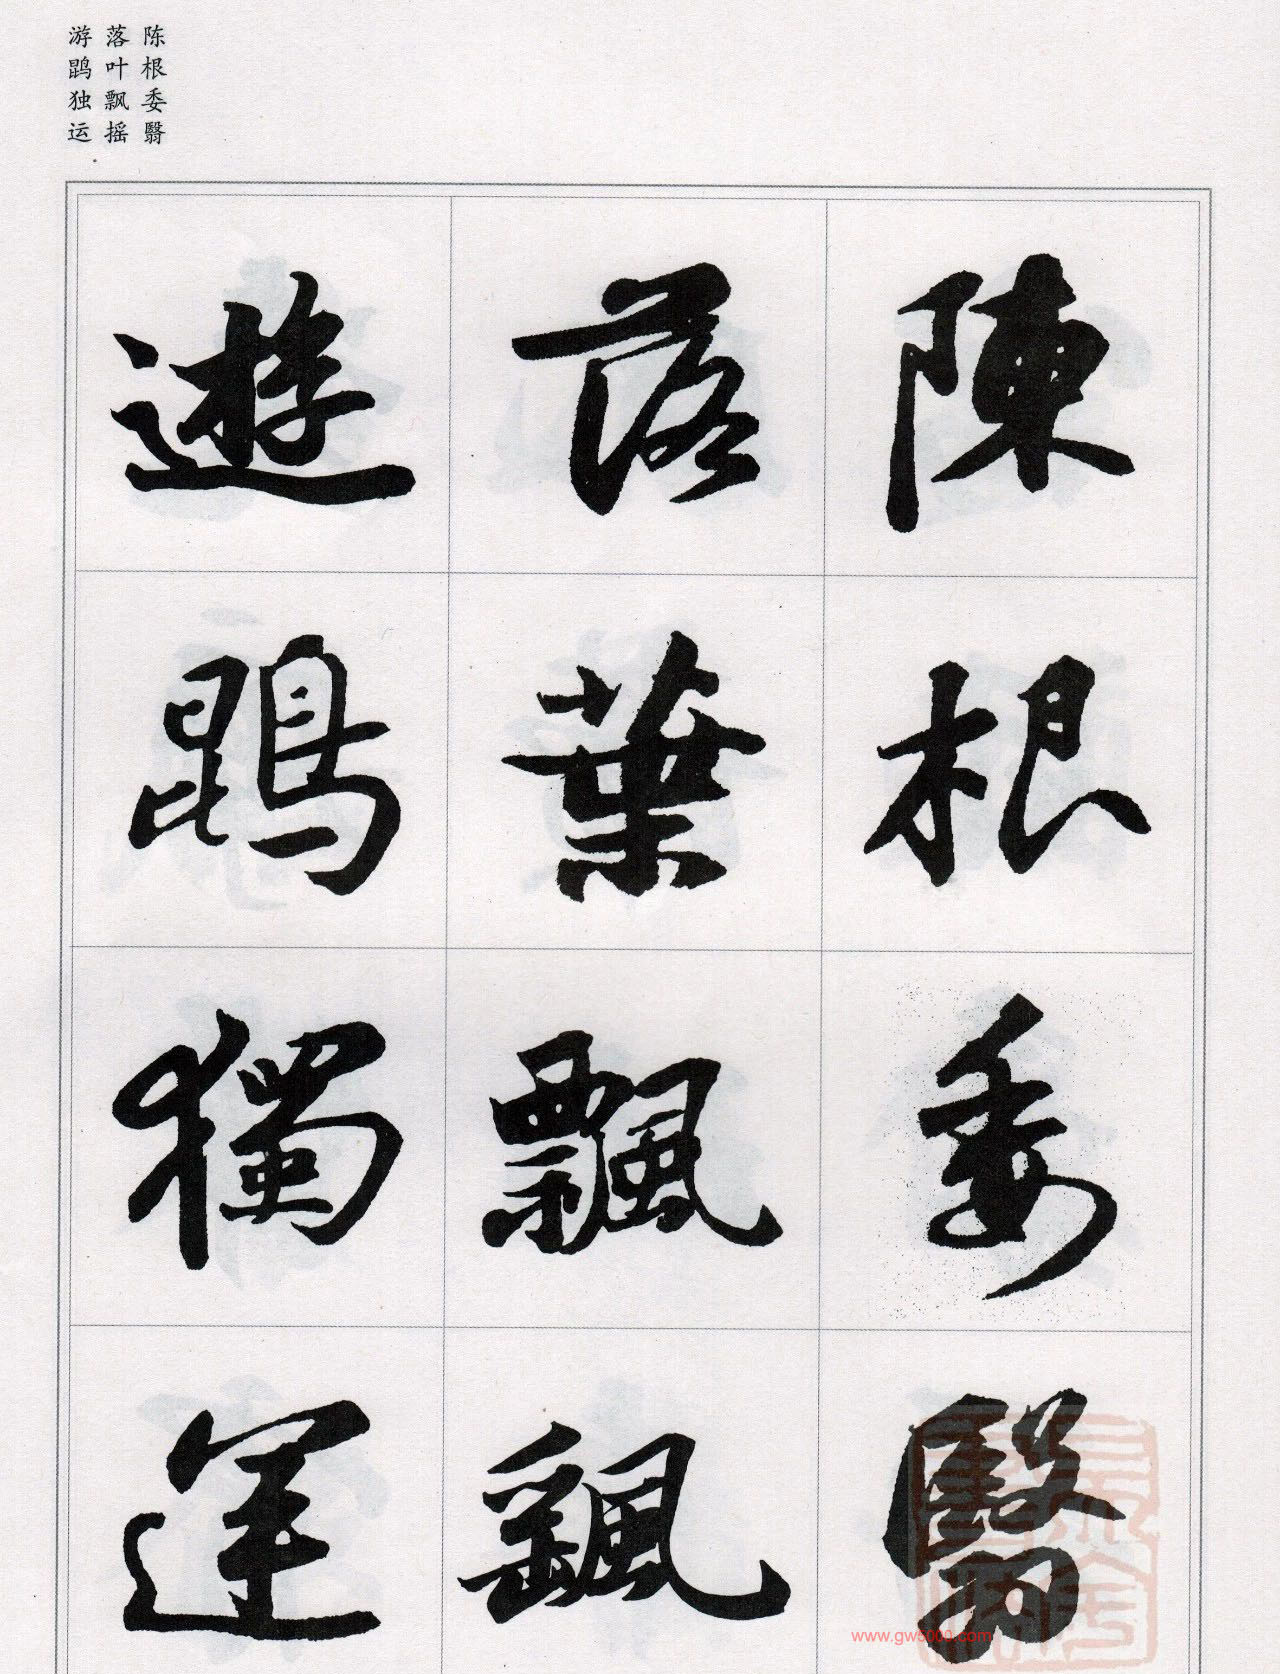 陈根委翳
落叶飘摇
游鹍独运
陳根委翳
落葉飄颻
遊鵾獨運
www.gw5000.com